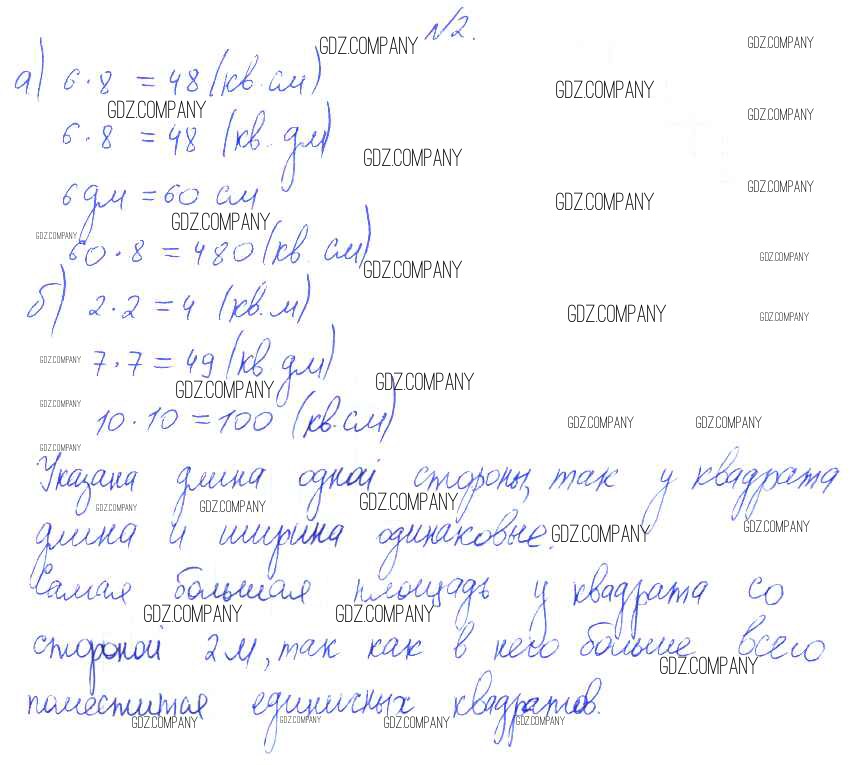 №2.
а) 6·8 = 48 (кв.см)
6·8 = 48 (кв. дм)
6 дм = 60 см
60·8 = 480 (кв. см)
б) 2·2 = 4 (кв.м)
7·7 = 49 (кв дм)
10·10 = 100 (кв.см)
Указана длина одной стороны, так у квадрата
длина и ширина одинаковые.
Самая большая площадь у квадрата со
стороной 2м, так как в него больше всего
поместится единичных квадратов.
GDZ.COMPANY